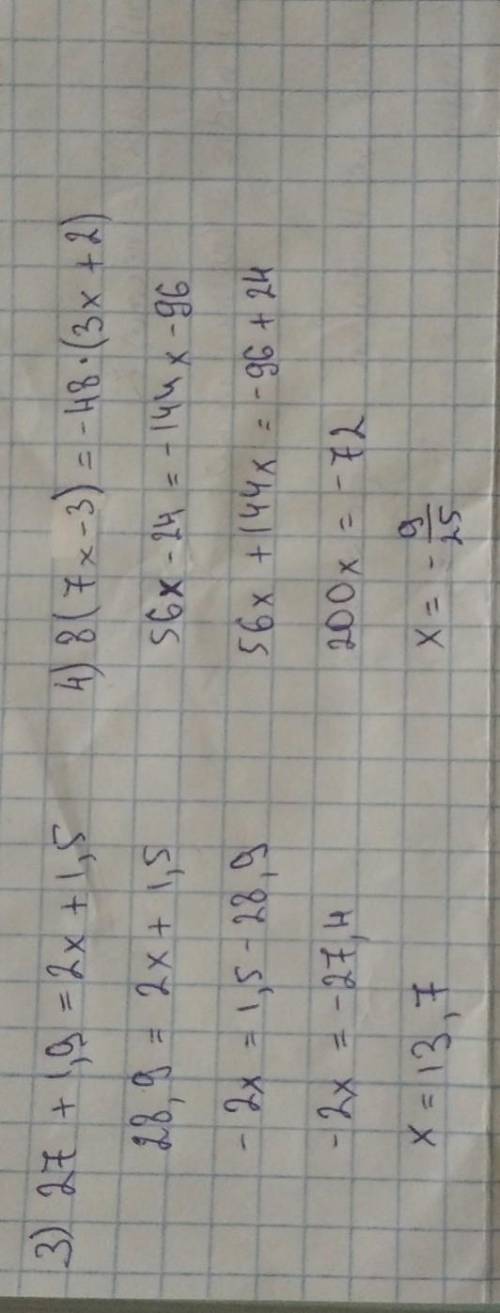 3) 27 + 1,9 = 2x + 1,5
28,9 = 2x + 1,5
-2x = 1,5 - 28,9
-2x = -27,4
x = 13,7
4) 8(7x-3) = -48·(3x+2)
56x - 24 = -144x - 96
56x + 144x = -96 + 24
200x = -72
x = -9/25